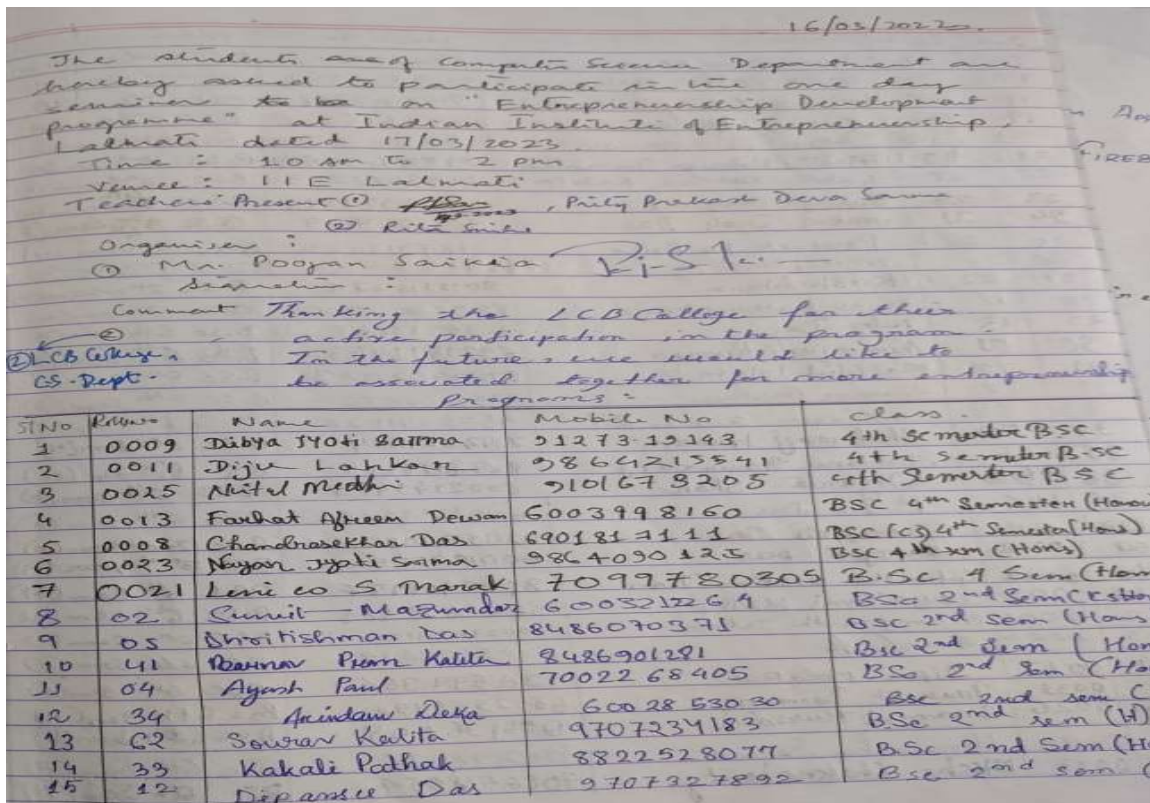 16/03/2022.
The students are of Computer Science Department are
hereby asked to participate in the one day
seminar to be on "Entrepreneurship Development
programme" at Indian Institute of Entrepreneurship,
Lalmati dated 17/03/2023.
Time : 10 AM To 2 pm
Venue : IIE Lalmati
Teachers Present ① , Prity Prakash Deva Sarma
② Rita
Organiser :
① Mr. Poojan Saikia
Signature :
Comment Thanking the LCB College for their
② active participation in the program.
② LCB College, In the future, we would like to
CS-Dept. be associated together for more entrepreneurship
Programs.
Sl No Rollno Name Mobile No Class.
1 0009 Dibya Jyoti Sarma 91273-19143 4th semester BSC
2 0011 Diju Lahkar 9864215541 4th semester B.SC
3 0025 Medhi 9101673205 4th Semester BSC
4 0013 Farhat Afreem Dewan 6003998160 BSC 4th Semester (Honou
5 0008 Chandrasekhar Das 6901817111 BSC (CS) 4th Semester (Hons)
6 0023 Nayan Jyoti Sarma 9864090125 BSC 4th sem (Hons)
7 0021 S Marak 7099780305 B.Sc 4 Sem (Hon
8 02 Sunit Mazumdar 6003212264 BSc 2nd Sem
9 05 Das 8486070371 BSC 2nd Sem (Hons
10 41 Prem Kalita 8486901281 Bsc 2nd Sem (Hon
11 04 Ayush Paul 70022 68405 BSc 2nd Sem (Ho
12 34 Arindam Deka 60028 53030 Bsc 2nd sem (
13 62 Sourav Kalita 9707234183 BSc 2nd sem (H)
14 33 Kakali Pathak 8822528077 B.Sc 2nd Sem (H
15 12 Dipansee Das 9707327892 Bsc 2nd sem (